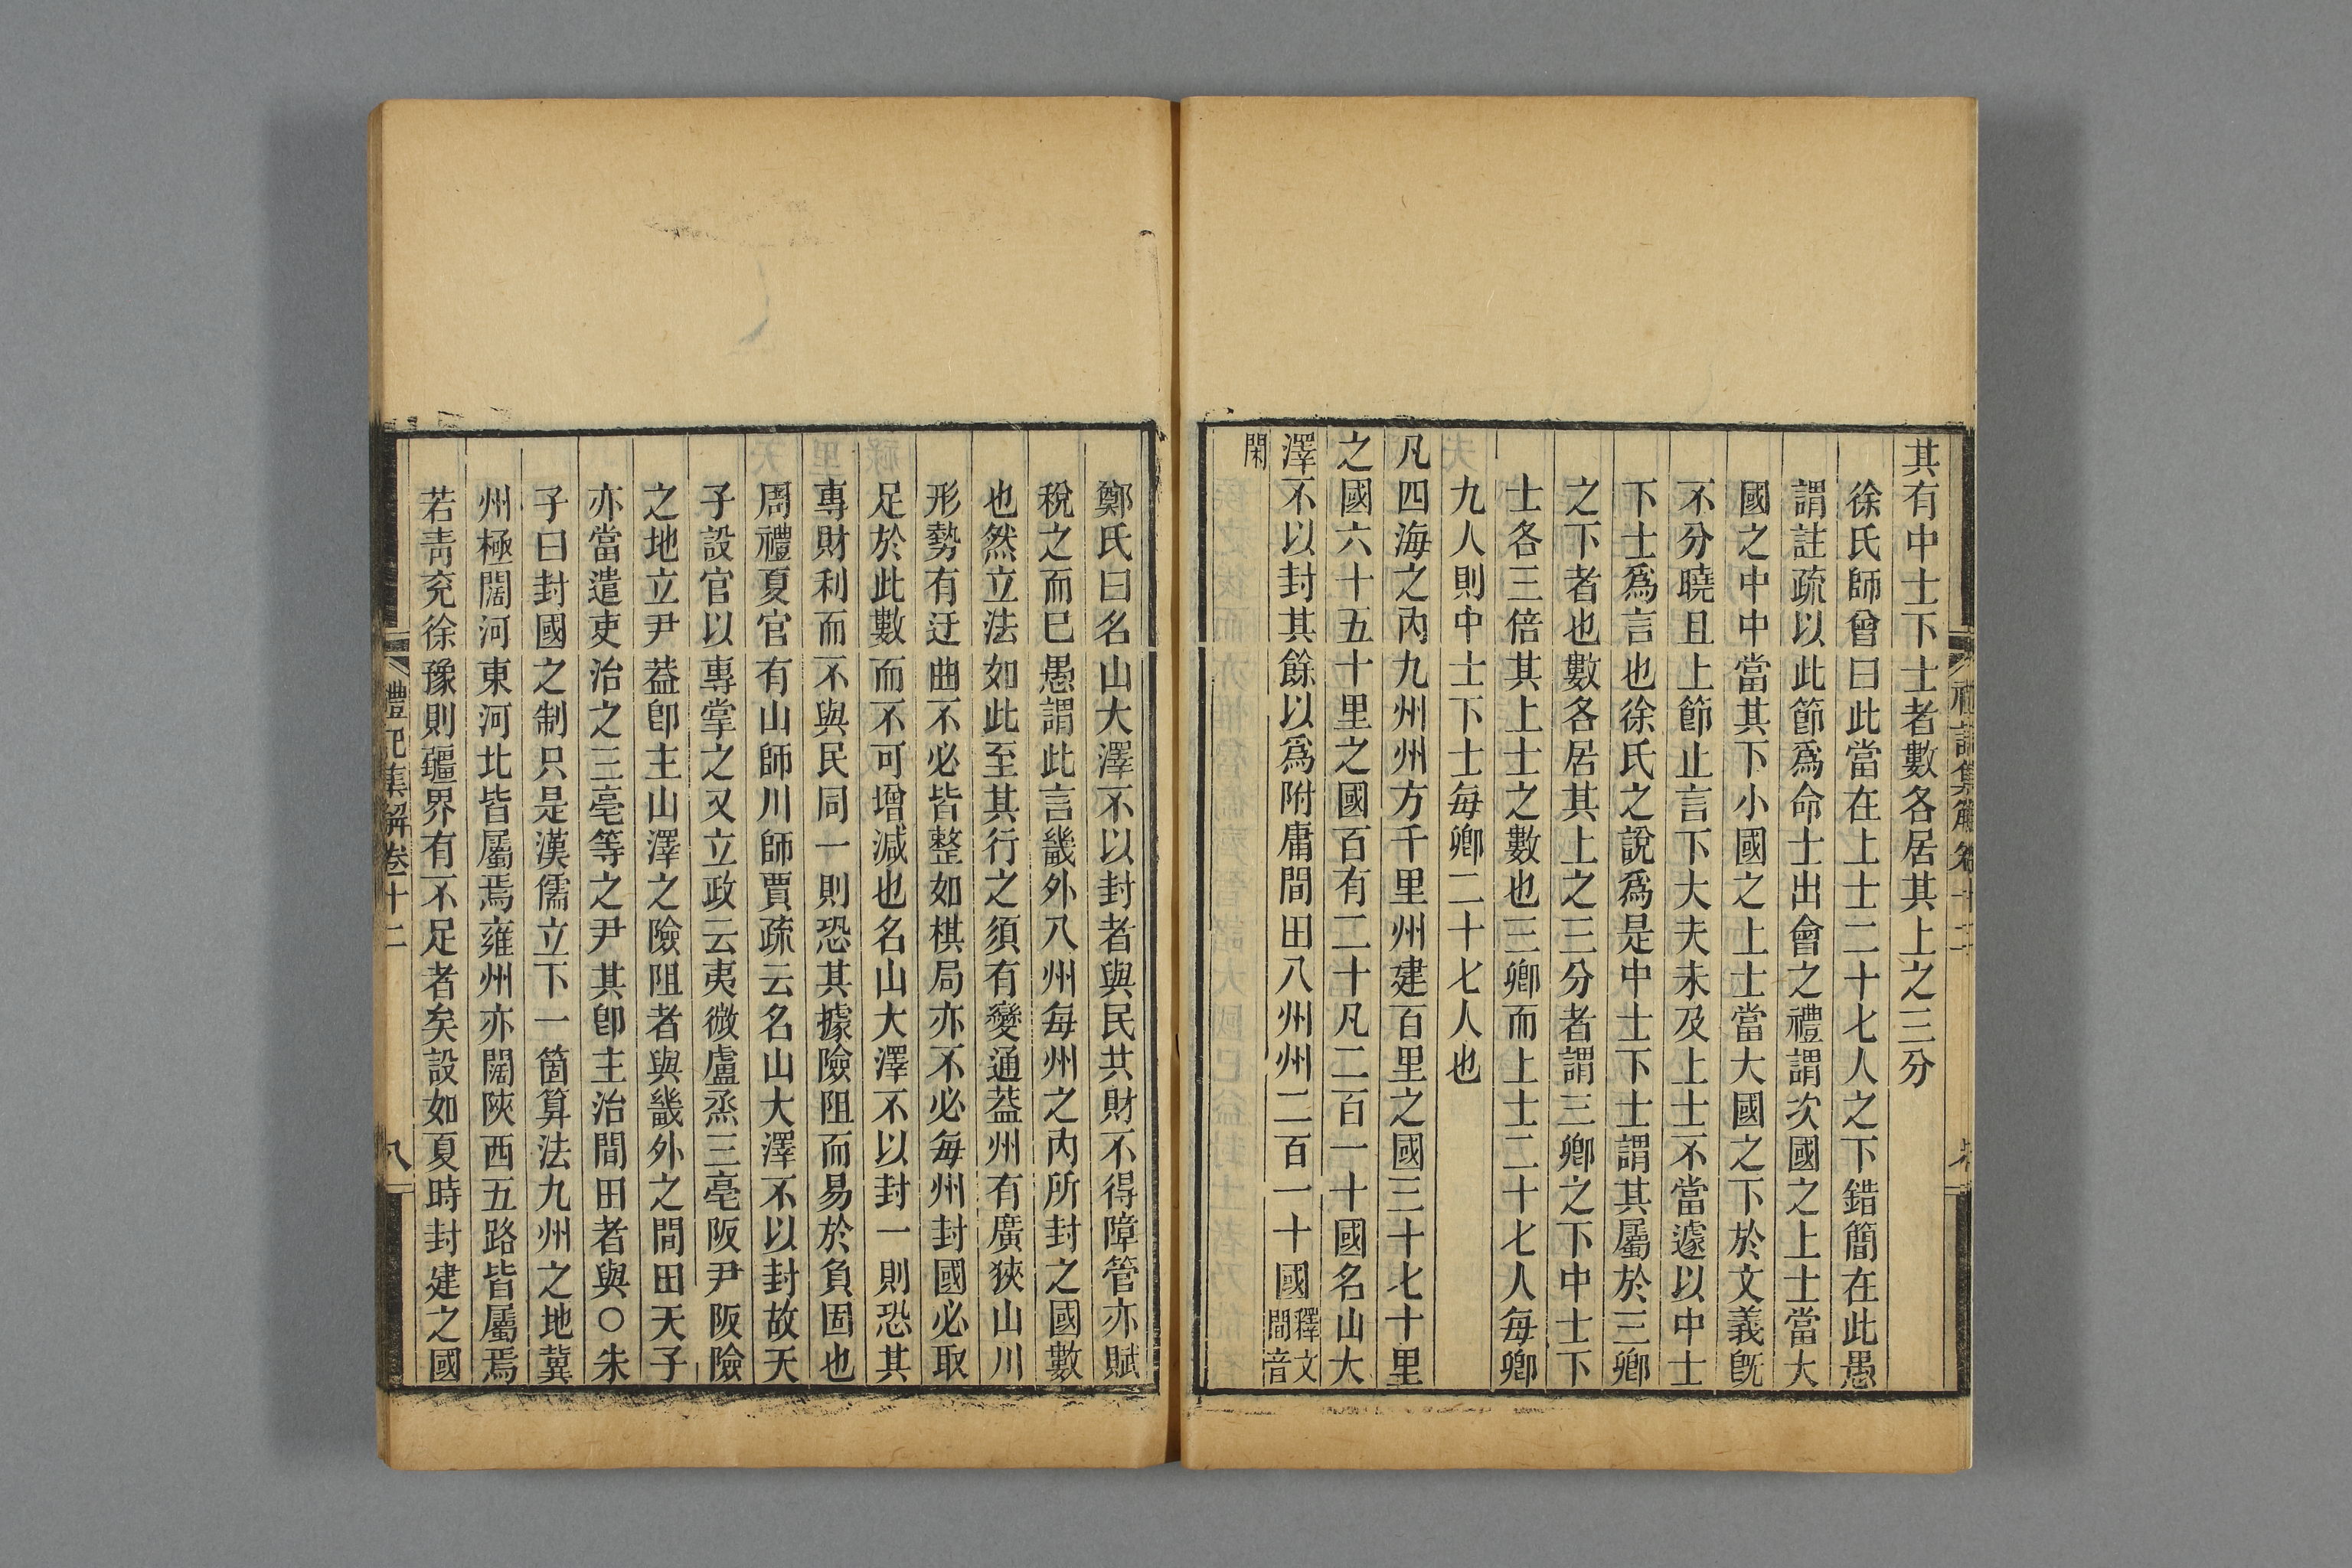 其有中士下士者數各居其上之三分
徐氏師曾曰此當在上士二十七人之下錯簡在此愚
謂註疏以此節爲命士出會之禮謂次國之上士當大
國之中中當其下小國之上士當大國之下於文義旣
不分曉且上節止言下大夫未及上士不當遽以中士
下士爲言也徐氏之說爲是中士下士謂其屬於三卿
之下者也數各居其上之三分者謂三卿之下中士下
士各三倍其上士之數也三卿而上士二十七人每卿
九人則中士下士每卿二十七人也
凡四海之內九州州方千里州建百里之國三十七十里
之國六十五十里之國百有二十凡二百一十國名山大
澤不以封其餘以爲附庸間田八州州二百一十國釋文間音
閑
鄭氏曰名山大澤不以封者與民共財不得障管亦賦
稅之而已愚謂此言畿外八州每州之內所封之國數
也然立法如此至其行之須有變通葢州有廣狹山川
形勢有迂曲不必皆整如棋局亦不必每州封國必取
足於此數而不可增減也名山大澤不以封一則恐其
專財利而不與民同一則恐其據險阻而易於負固也
周禮夏官有山師川師賈疏云名山大澤不以封故天
子設官以專掌之又立政云夷微盧烝三亳阪尹阪險
之地立尹葢卽主山澤之險阻者與畿外之間田天子
亦當遣吏治之三亳等之尹其卽主治間田者與○朱
子曰封國之制只是漢儒立下一箇算法九州之地冀
州極闊河東河北皆屬焉雍州亦闊陝西五路皆屬焉
若靑兖徐豫則疆界有不足者矣設如夏時封建之國
禮記集解卷十二
八